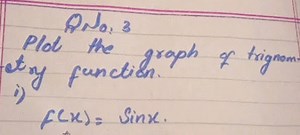 Q No. 3
Plot the graph of trignom-
etry function.
i)
f(x) = Sinx.